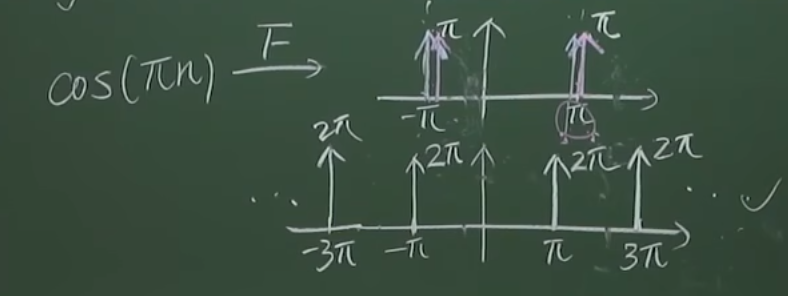 cos(πn) F π π
-π π
2π 2π 2π 2π
... ...
-3π -π π 3π